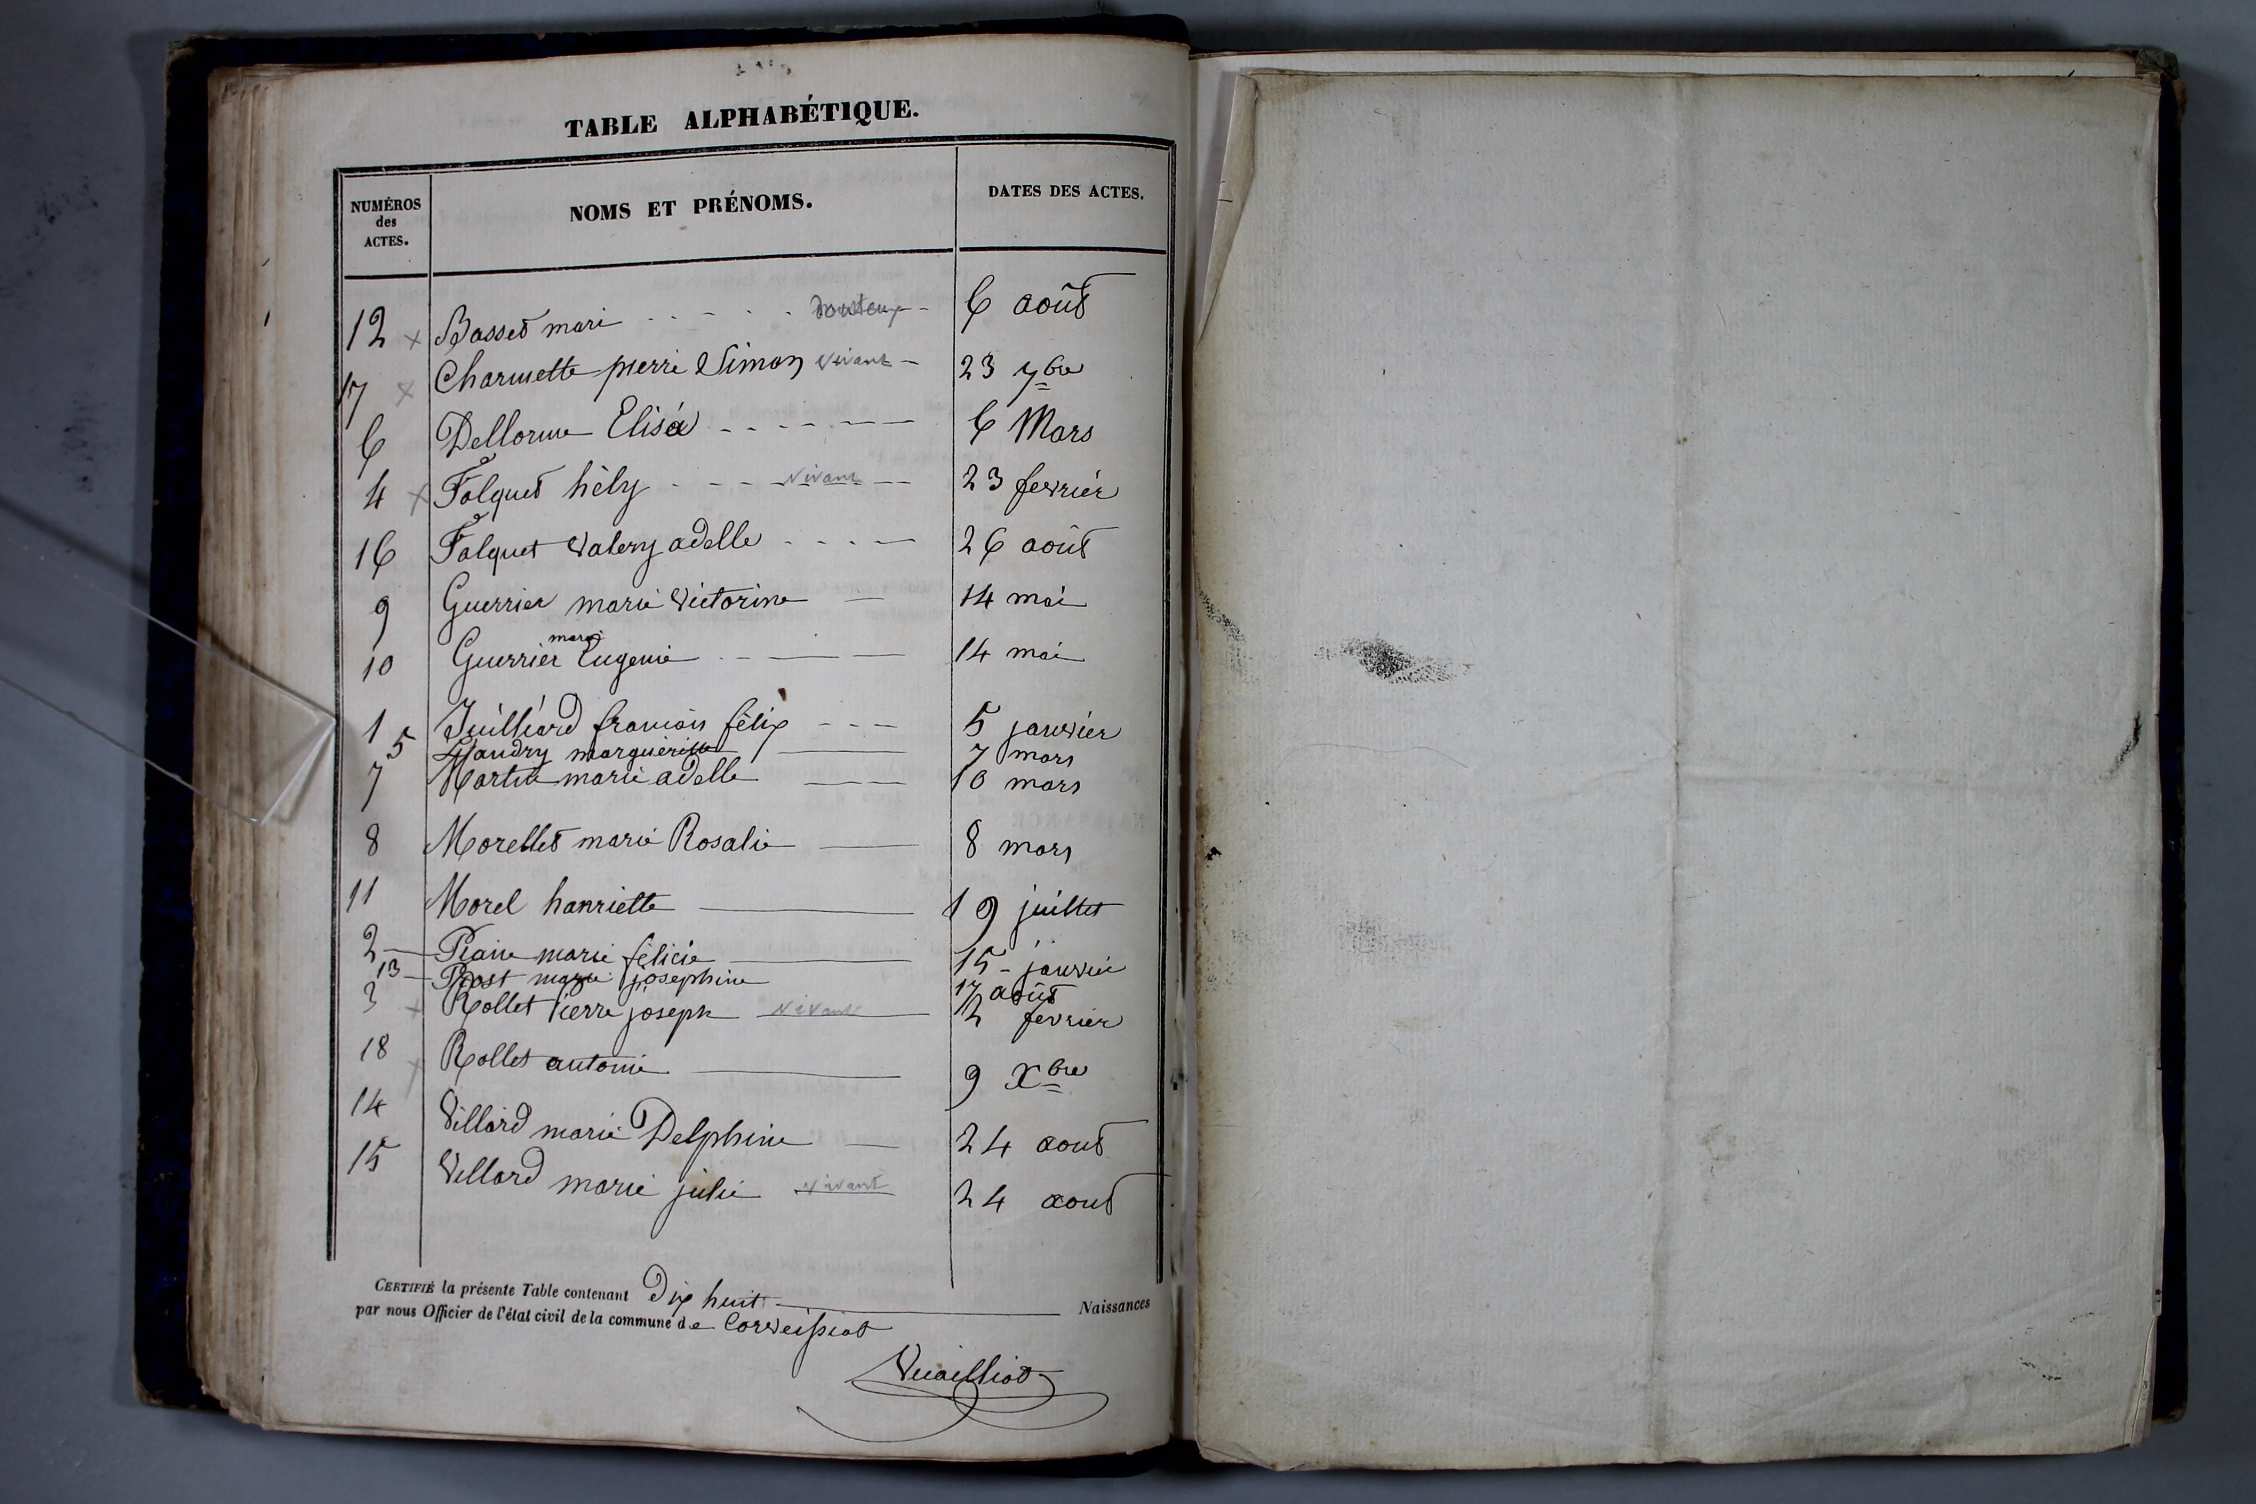 TABLE ALPHABÉTIQUE.
NUMÉROS des ACTES. NOMS ET PRÉNOMS. DATES DES ACTES.
12 x Basset mari douteux 6 août
17 x Charmette pierre Simon vivant 23 7bre
6 Dellorme Elisa 6 Mars
4 x Folquet hèly vivant 23 fevrier
16 Falquet Valery adelle 26 août
9 Guerrier marie Victorine 14 mai
marie
10 Guerrier Eugenie 14 mai
1 Juilliard francois félix 5 janvier
5 Landry marguerite 7 mars
7 Martin marie adelle 10 mars
8 Morellet marie Rosalie 8 mars
11 Morel hanriette 19 juillet
2 marie félicie 15 janvier
13 Prost marie josephine 17 août
3 x Rollet Pierre joseph vivant 2 fevrier
18 x Rollet antoine 9 Xbre
14 Villard marie Delphine 24 aout
15 Villard marie julie vivant 24 aout
CERTIFIÉ la présente Table contenant Dix huit Naissances
par nous Officier de l'état civil de la commune de Corveissiat
Vuailliot